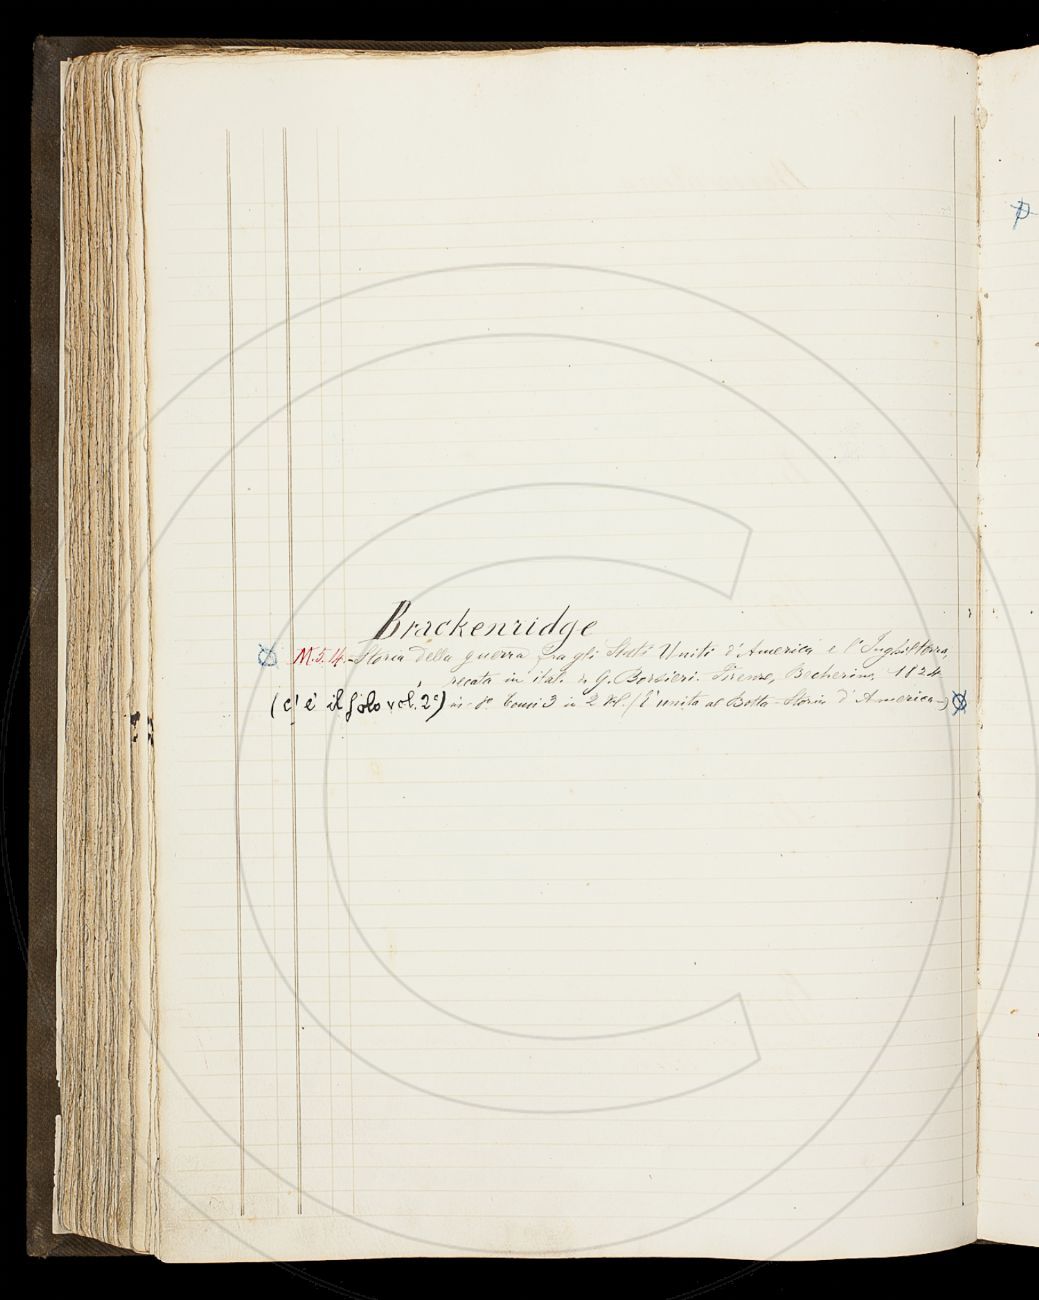 Brackenridge
M.5.14. Storia della guerra fra gli Stati Uniti d'America e l'Inghilterra,
recata in ital. da G. Borsieri. Firenze, Becherini, 1824
(c'è il solo vol. 2º) in-8º tomi 3 in 2 Vol. (È unita al Botta-Storia d'America-)